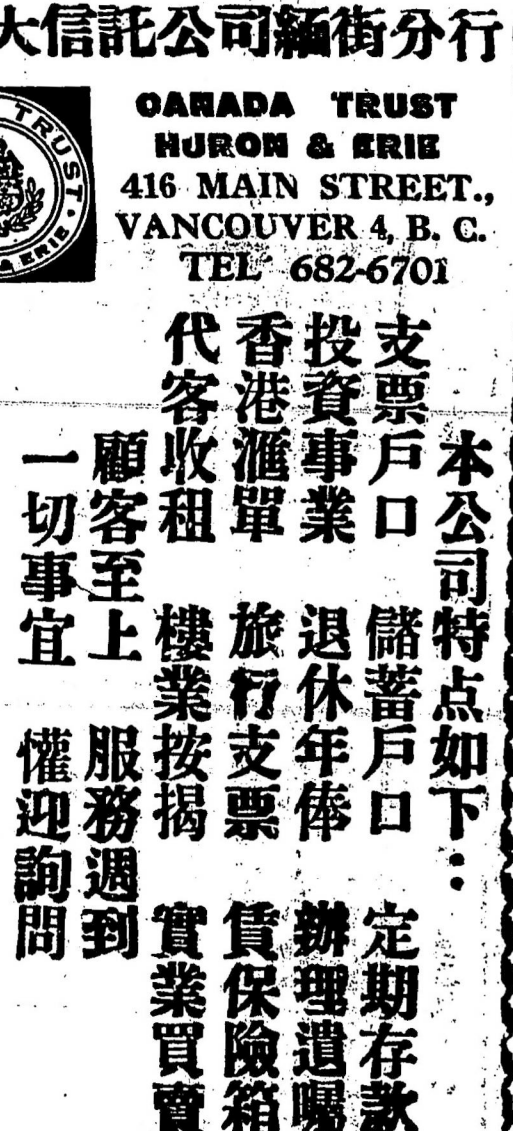 大信託公司緬街分行
TRUST
& ERIE
CANADA TRUST
HURON & ERIE
416 MAIN STREET.,
VANCOUVER 4, B. C.
TEL 682-6701
本公司特点如下：
支票戶口 儲蓄戶口 定期存款
投資事業 退休年俸 辦理遺囑
香港滙單 旅行支票 賃保險箱
代客收租 樓業按揭 實業買賣
顧客至上 服務週到
一切事宜 懽迎詢問